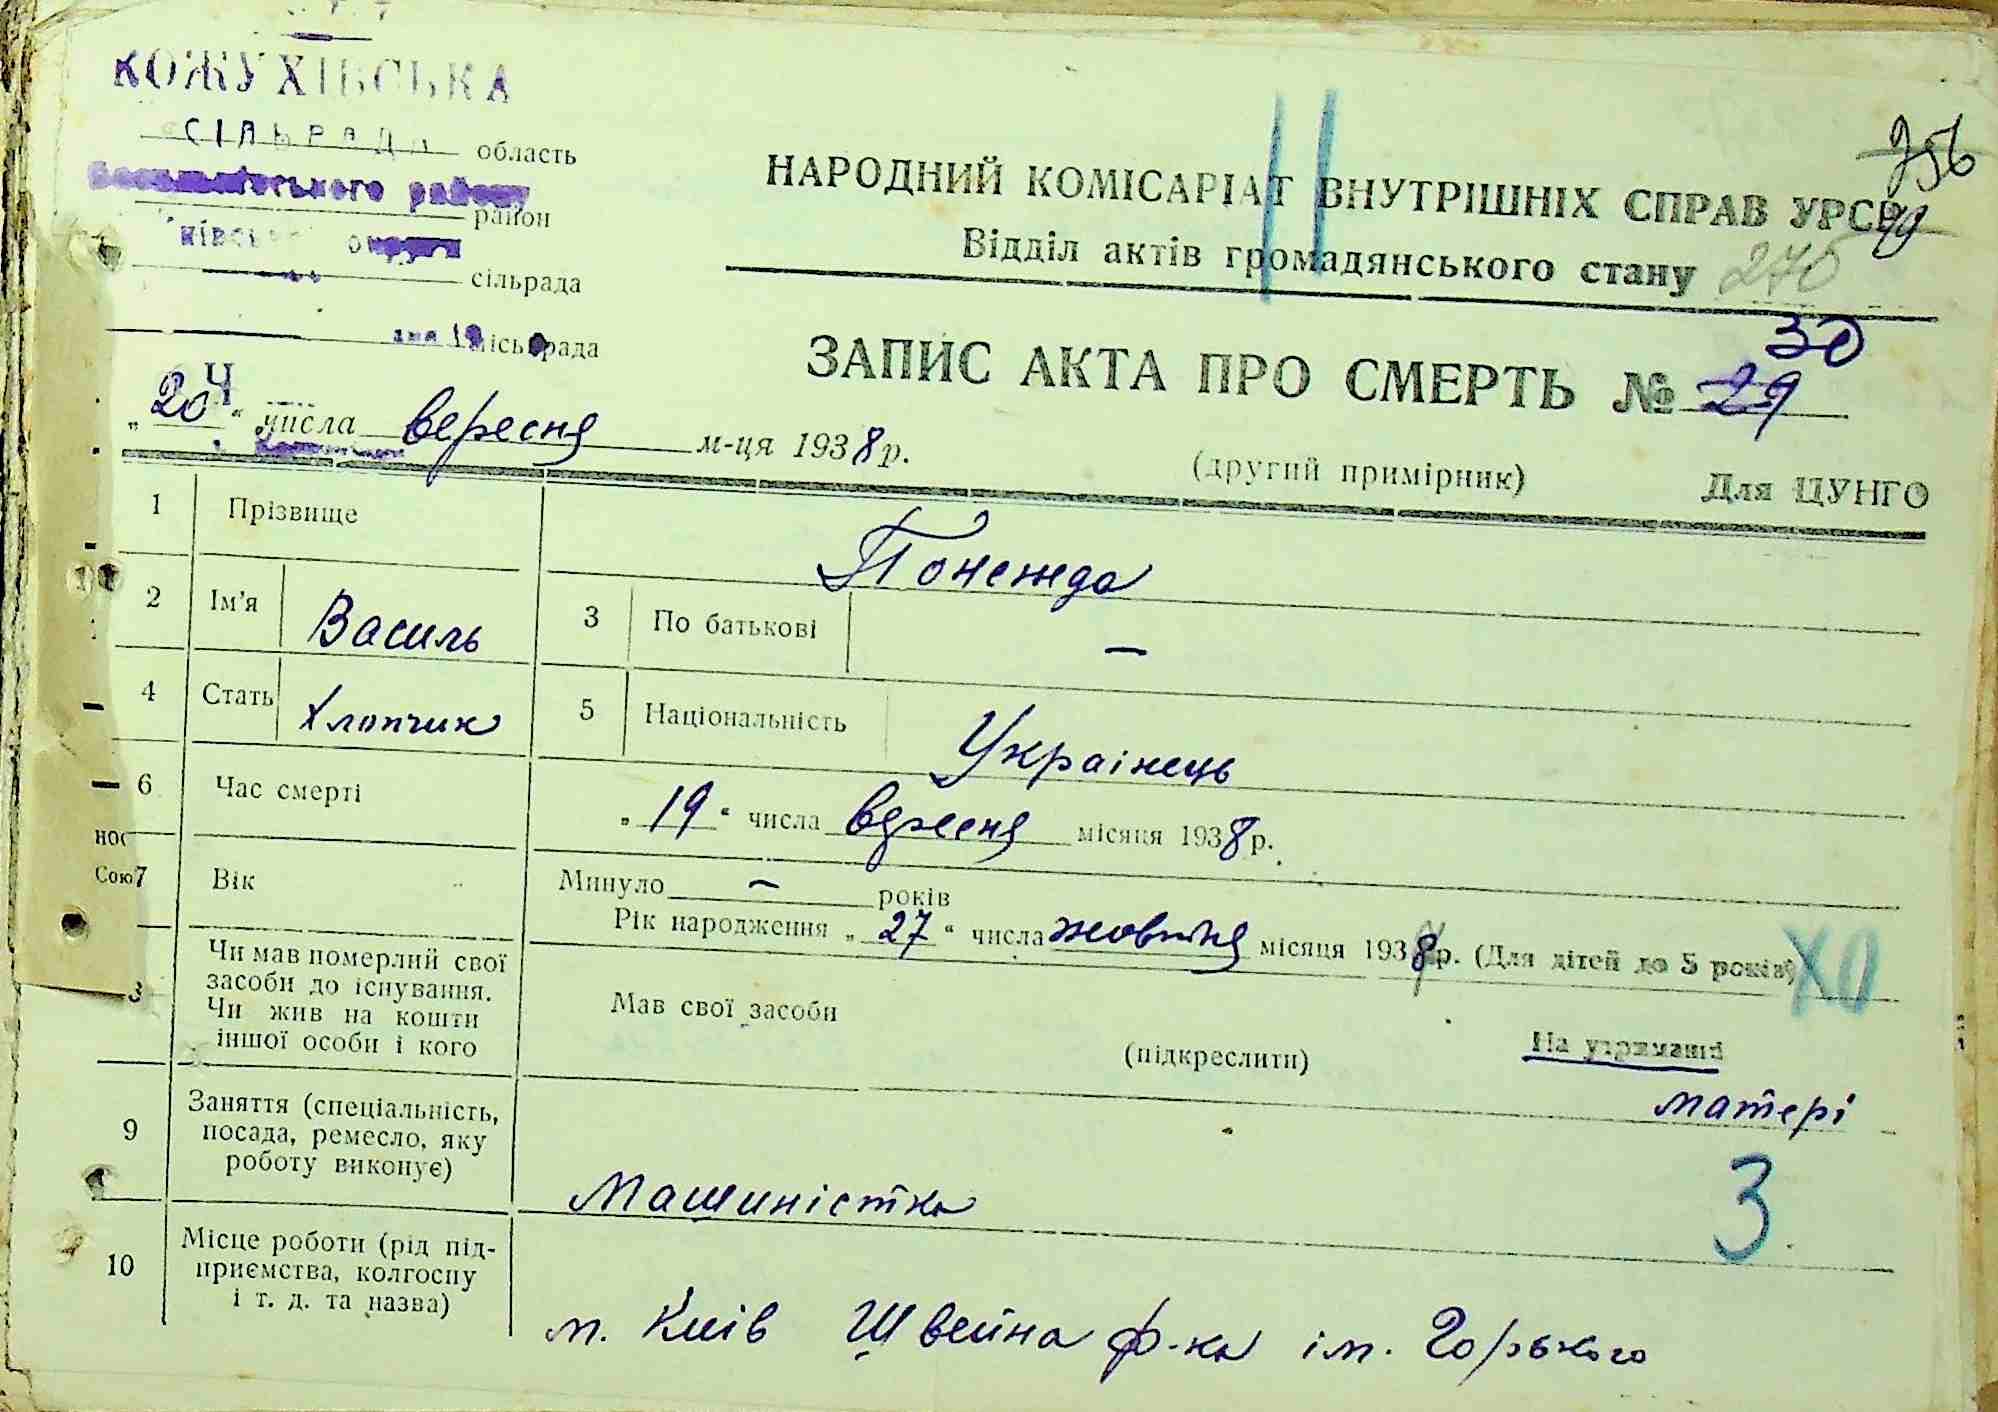 КОЖУХІВСЬКА
СІЛЬРАДА область
Васильківського району
район
Київської округи
сільрада
міськрада
НАРОДНИЙ КОМІСАРІАТ ВНУТРІШНІХ СПРАВ УРСР
Відділ актів громадянського стану
256
99
270
ЗАПИС АКТА ПРО СМЕРТЬ № 29
30
„20“ числа вересня м-ця 1938 р.
(другий примірник) Для ЦУНГО
1 Прізвище Понежда
2 Ім'я Василь 3 По батькові —
4 Стать Хлопчик 5 Національність Українець
6 Час смерті „19“ числа вересня місяця 1938 р.
7 Вік Минуло — років
Рік народження „27“ числа жовтня місяця 1938 р. (Для дітей до 5 років)
ХО
Чи мав померлий свої
засоби до існування.
Чи жив на кошти
іншої особи і кого
Мав свої засоби
(підкреслити)
На утриманні
матері
9 Заняття (спеціальність,
посада, ремесло, яку
роботу виконує)
Машиністка
3
10 Місце роботи (рід під-
приємства, колгоспу
і т. д. та назва)
м. Київ Швейна ф-ка ім. Горького